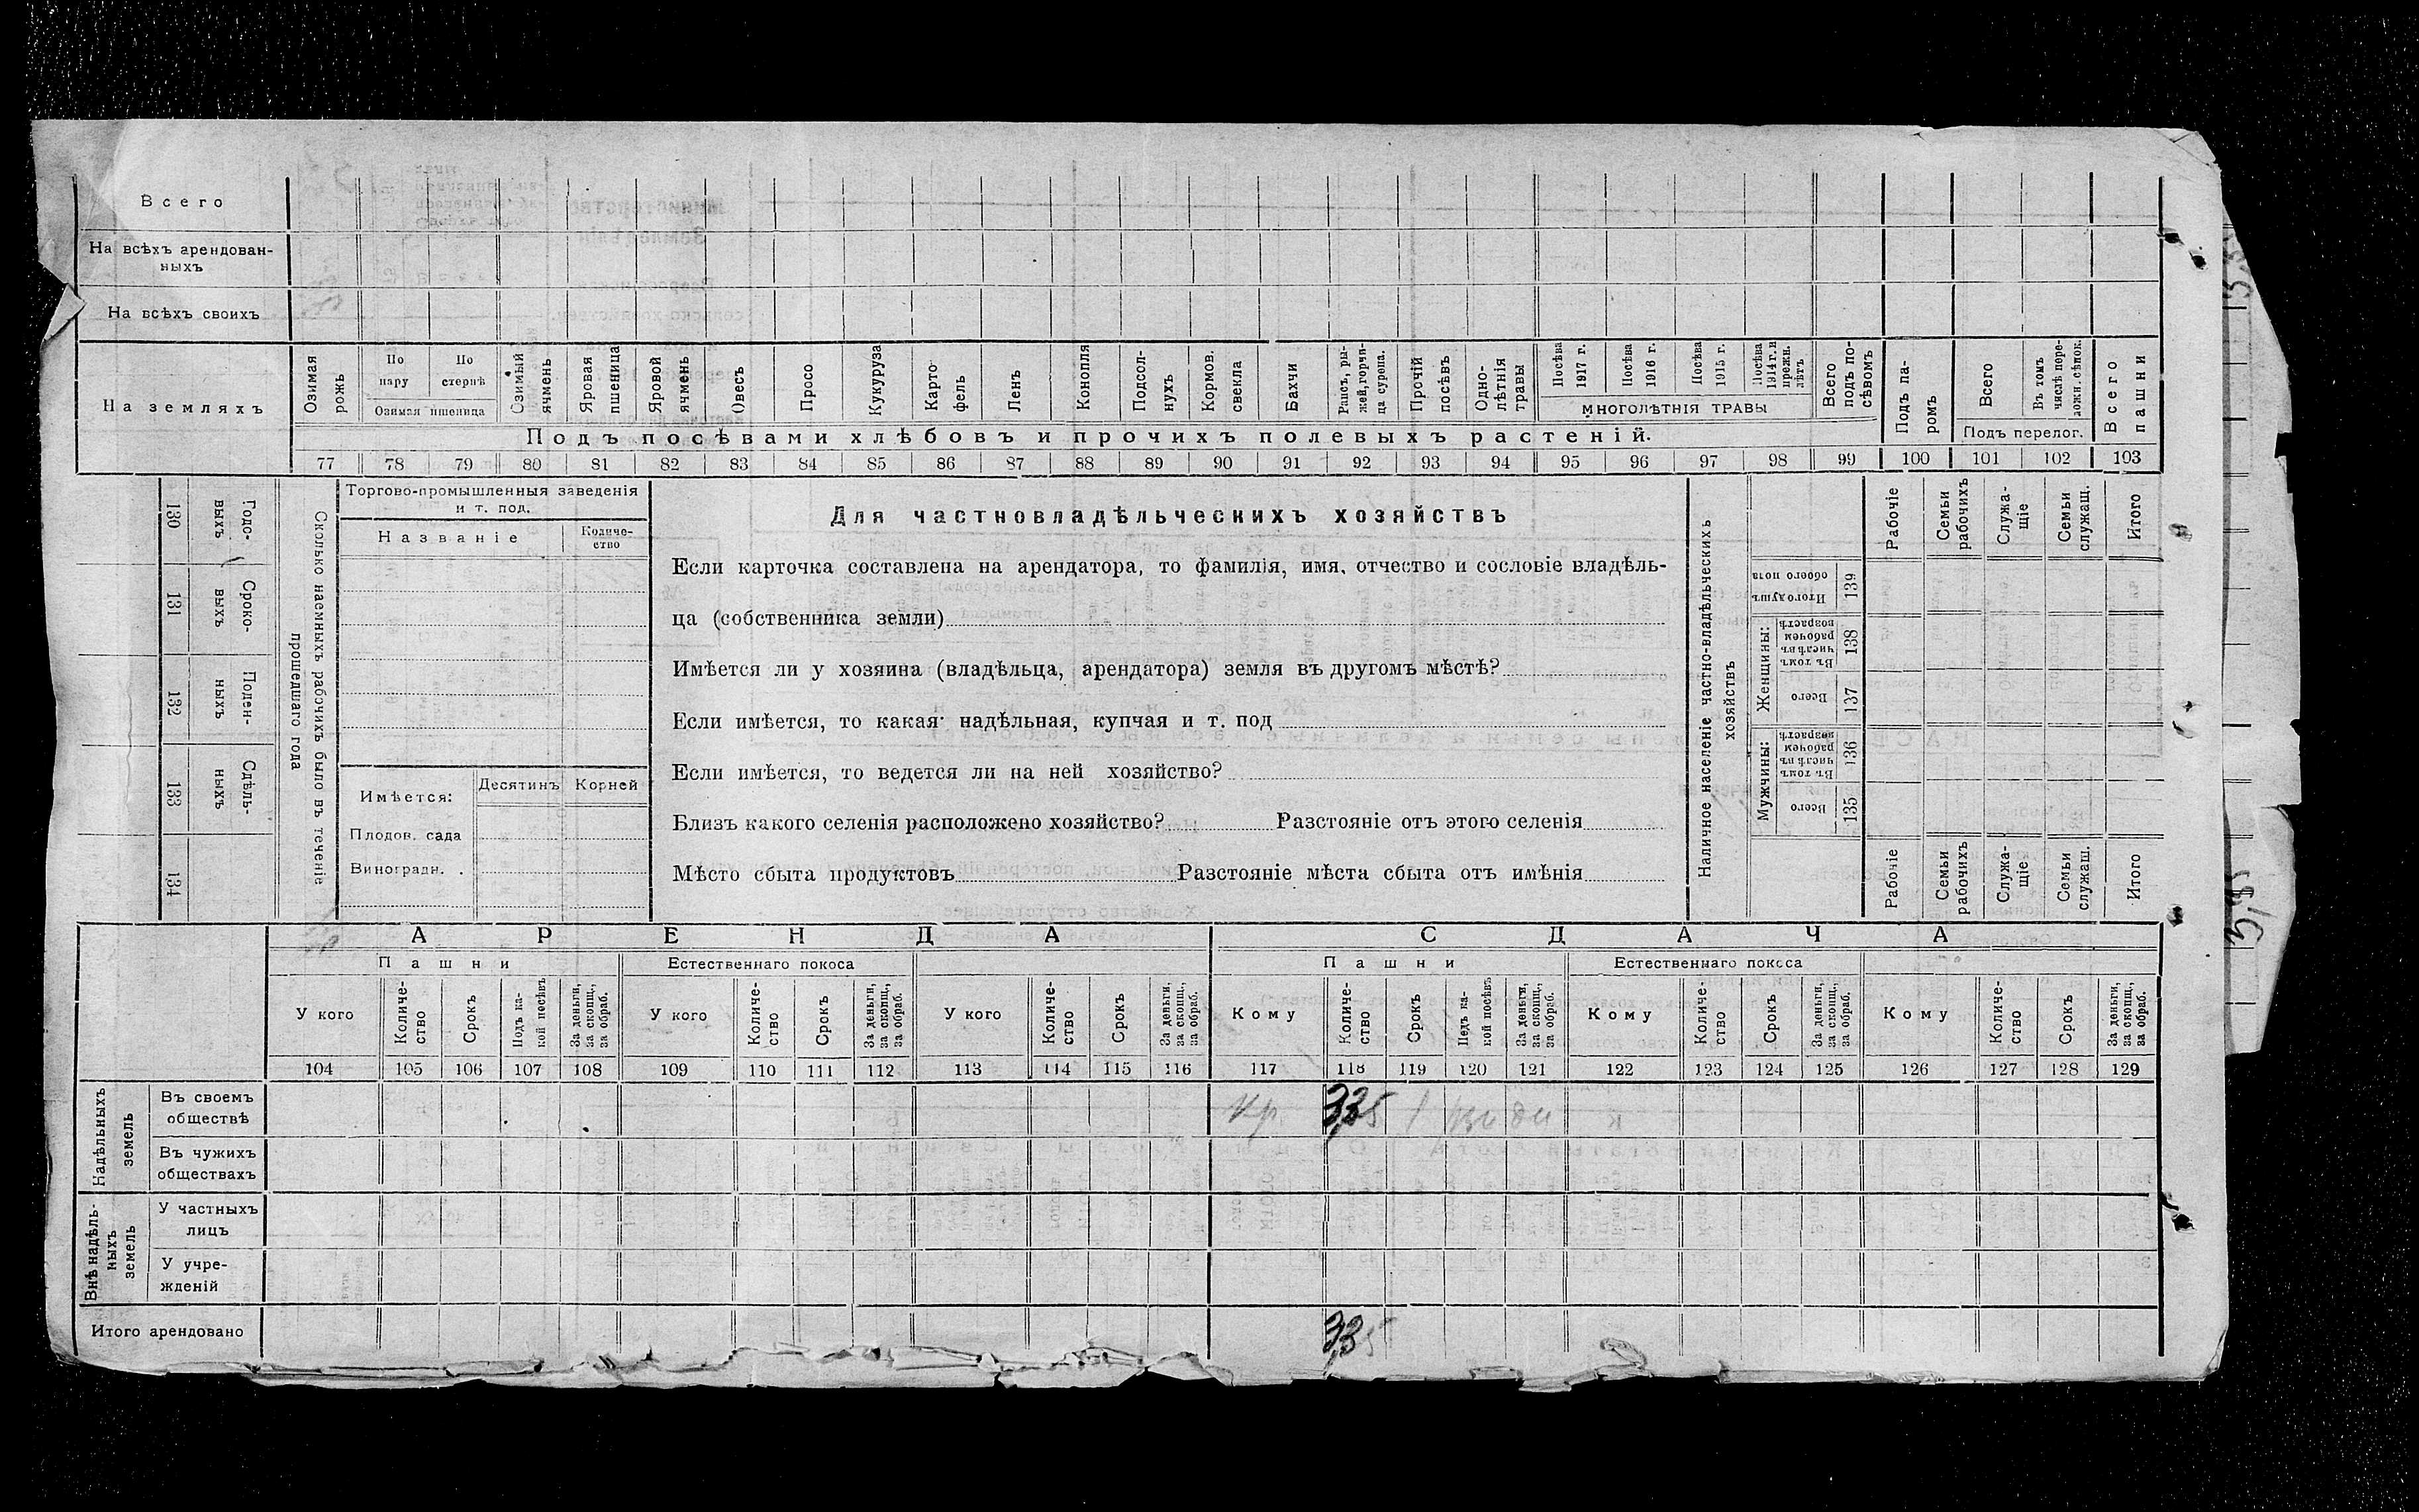 Всего
На всѣхъ арендован-
ныхъ
На всѣхъ своихъ
На земляхъ
Озимая рожь
По пару
По стернѣ
Озимая пшеница
Озимый ячмень
Яровая пшеница
Яровой ячмень
Овесъ
Просо
Кукуруза
Карто-
фель
Ленъ
Конопля
Подсол-
нухъ
Кормов. свекла
Бахчи
Рапсъ, ры-
жей, горчи-
ца сурепа.
Прочій посѣвъ
Одно-
лѣтнія
травы
Посѣва 1917 г.
Посѣва 1916 г.
Посѣва 1915 г.
Посѣва 1914 г. и прежн. лѣтъ
многолѣтнія травы
Всего подъ по-
сѣвомъ
Подъ па-
ромъ
Всего
Въ томъ числѣ пере-
ложн. сѣнок.
Подъ перелог.
Всего пашни
Подъ посѣвами хлѣбовъ и прочихъ полевыхъ растеній.
77 78 79 80 81 82 83 84 85 86 87 88 89 90 91 92 93 94 95 96 97 98 99 100 101 102 103
Сколько наемныхъ рабочихъ было въ теченіе
прошедшаго года
Годо-
выхъ
130
Сроко-
выхъ
131
Поден-
ныхъ
132
Сдѣль-
ныхъ
133
134
Торгово-промышленныя заведенія
и т. под.
Названіе
Количе-
ство
Имѣется:
Десятинъ
Корней
Плодов. сада
Виноградн. .
Для частновладѣльческихъ хозяйствъ
Если карточка составлена на арендатора, то фамилія, имя, отчество и сословіе владѣль-
ца (собственника земли)
Имѣется ли у хозяина (владѣльца, арендатора) земля въ другомъ мѣстѣ?
Если имѣется, то какая· надѣльная, купчая и т. под
Если имѣется, то ведется ли на ней хозяйство?
Близъ какого селенія расположено хозяйство? Разстояніе отъ этого селенія
Мѣсто сбыта продуктовъ Разстояніе мѣста сбыта отъ имѣнія
Наличное населеніе частно-владѣльческихъ
хозяйствъ
Рабочіе
Семьи рабочихъ
Служа-
щіе
Семьи служащ.
Итого
Итого душъ обоего пола
139
Женщины:
Въ томъ числѣ въ рабочемъ возрастѣ
138
Всего
137
Мужчины:
Въ томъ числѣ въ рабочемъ возрастѣ
136
Всего
135
Рабочіе
Семьи рабочихъ
Служа-
щіе
Семьи служащ.
Итого
АРЕНДА
СДАЧА
Пашни
Естественнаго покоса
Пашни
Естественнаго покоса
У кого
Количе-
ство
Срокъ
Подъ ка-
кой посѣвъ
За деньги,
за скопщ.,
за обраб.
У кого
Количе-
ство
Срокъ
За деньги,
за скопщ.,
за обраб.
У кого
Количе-
ство
Срокъ
За деньги,
за скопщ.,
за обраб.
Кому
Количе-
ство
Срокъ
Подъ ка-
кой посѣвъ
За деньги,
за скопщ.,
за обраб.
Кому
Количе-
ство
Срокъ
За деньги,
за скопщ.,
за обраб.
Кому
Количе-
ство
Срокъ
За деньги,
за скопщ.,
за обраб.
104 105 106 107 108 109 110 111 112 113 114 115 116 117 118 119 120 121 122 123 124 125 126 127 128 129
Надѣльныхъ
земель
Въ своемъ
обществѣ
кр.
Въ чужихъ
обществахъ
Внѣ надѣль-
ныхъ
земель
У частныхъ
лицъ
У учре-
жденій
Итого арендовано